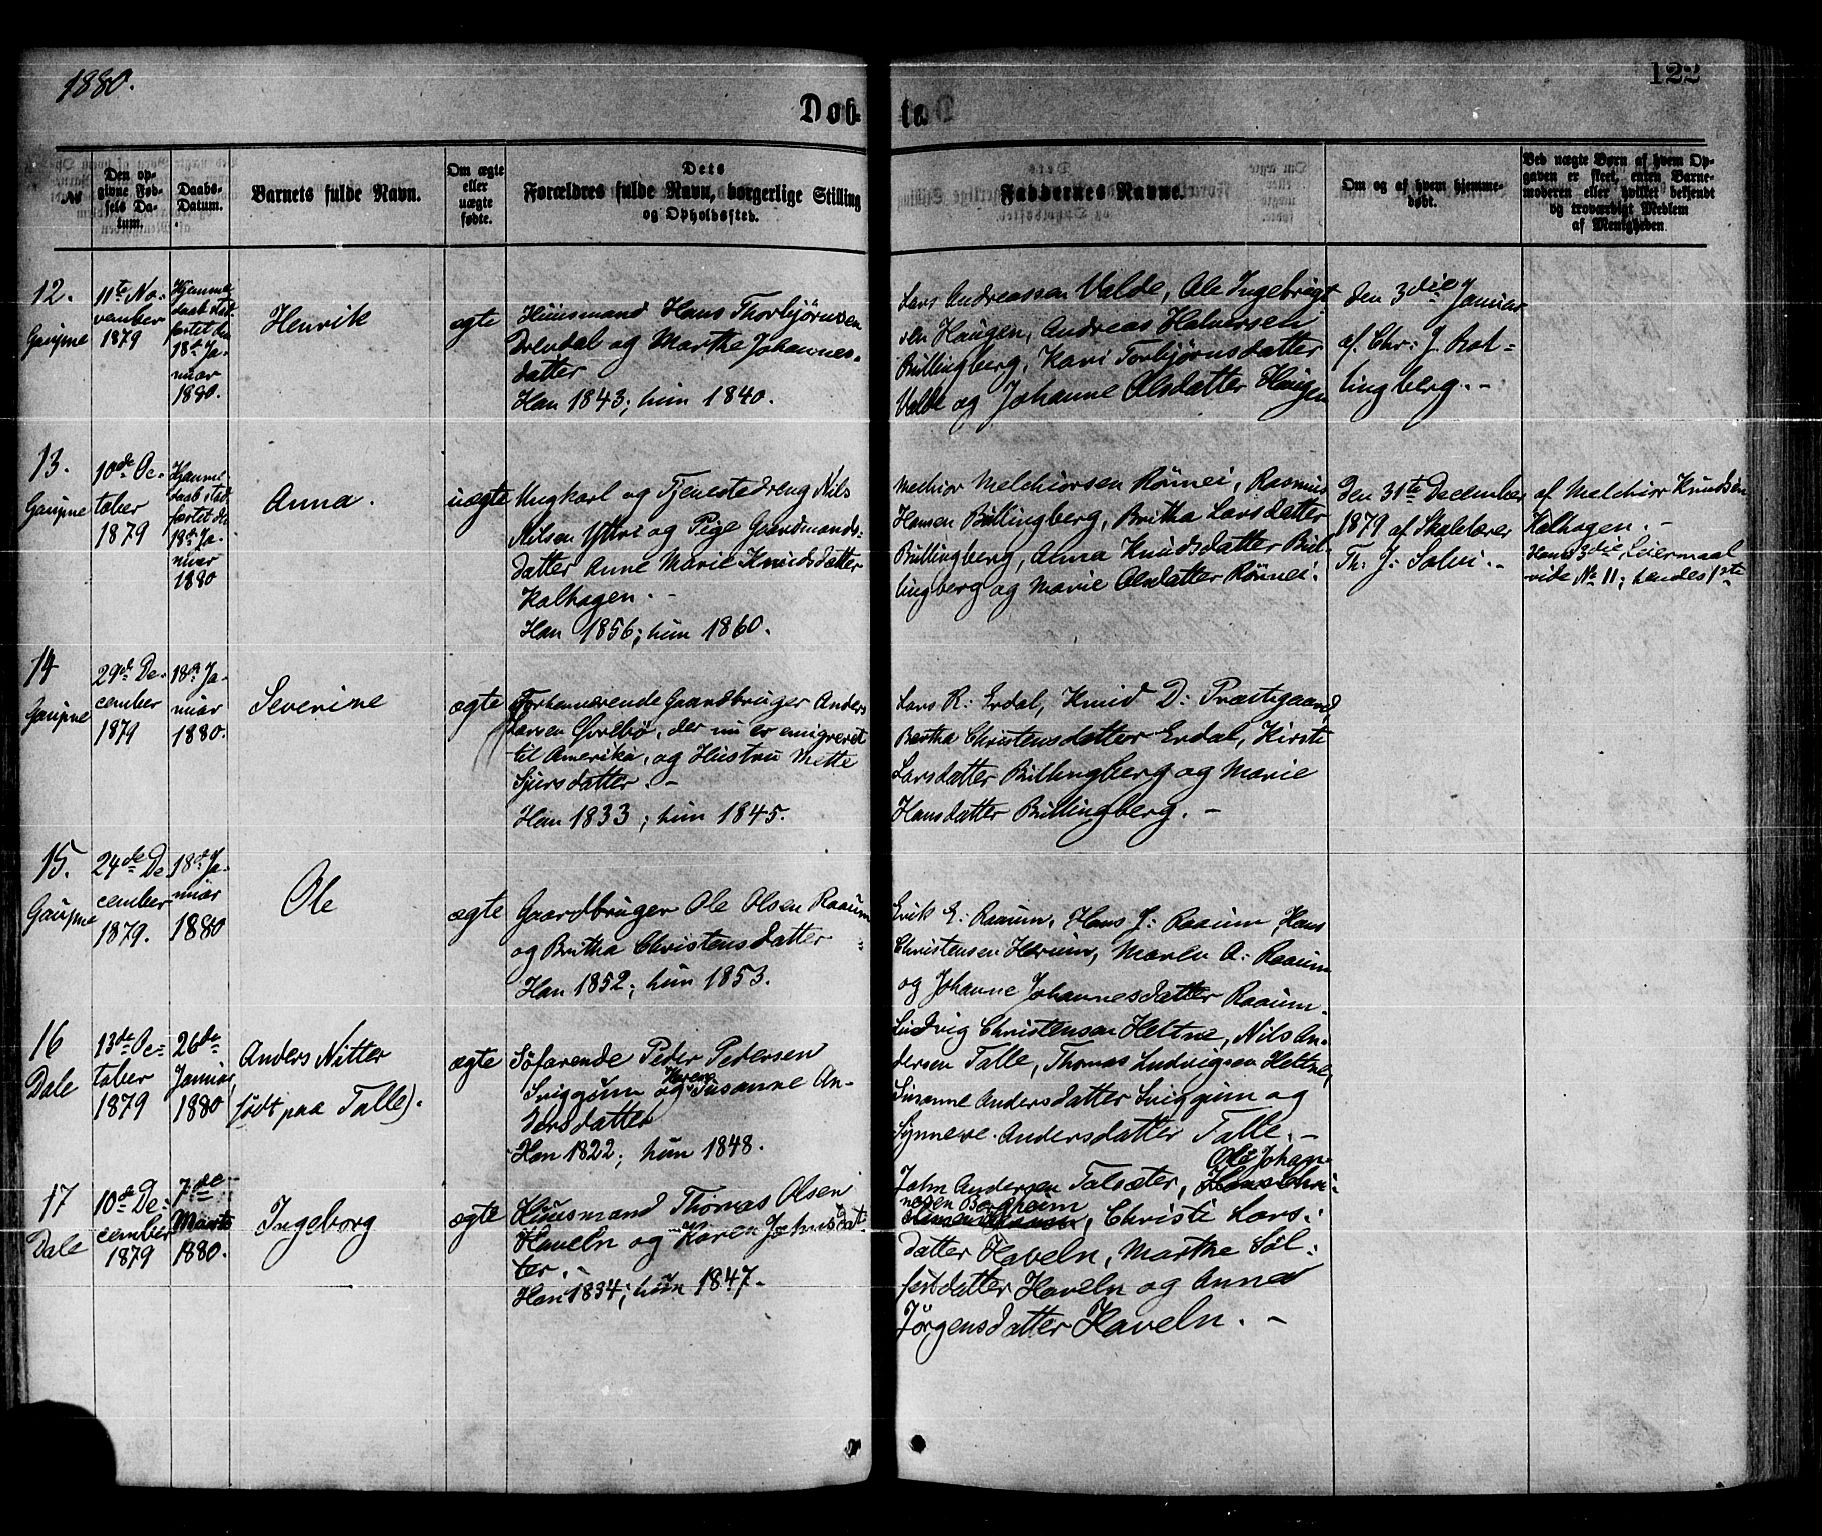 1880.
122
Døb-
te.
No
Den op-
givne Fød-
sels Da-
tum.
Daabs-
Datum.
Barnets fulde Navn.
Om ægte
eller
uægte
fødte.
Dets
Forældres fulde Navn, borgerlige Stilling
og Opholdssted.
Faddernes Navne.
Om og af hvem hjemme-
døbt.
Ved uægte Børn af hvem Op-
gaven er skeet, enten Barne-
moderen eller hvilket bekjendt
og troværdigt Medlem
af Menigheden.
12.
Gaupne
11te No-
vember
1879
Hjemme-
daab stad-
fæstet den
18de Ja-
nuar
1880.
Henrik
ægte
Huusmand Hans Thorbjørnsen
Drevdal og Marthe Johannes-
datter
Han 1843; hun 1840.
Lars Andreassen Valde, Ole Ingebrigt-
sen Haugen, Andreas Halversen
Bullingberg, Kari Torbjørnsdatter
Valde og Johanne Olsdatter Haugen
Den 3die Januar
af Chr: J. Bol-
lingberg. -
13.
Gaupne
10de Oc-
tober
1879
Hjemme-
daab stad-
fæstet den
18de Ja-
nuar
1880
Anna.
uægte
Ungkarl og Tjenestedreng Nils
Nilsen Yttri og Pige Gaardmands-
datter Anne Marie Knudsdatter
Kalhagen. -
Han 1856; hun 1860.
Melchior Melchiorsen Rønnei, Rasmus
Hansen Bullingberg, Britha Larsdatter
Bullingberg, Anna Knudsdatter Bul-
lingberg og Marie Olsdatter Rønnei.
Den 31te December
1879 af Skolelærer
Th: J: Solvi. -
af Melchior Knudsen
Kalhagen. -
Hans 3die Leiermaal
vide No 11; hendes 1ste
14
Gaupne
29de De-
cember
1879
18de Ja-
nuar
1880.
Severine
ægte
Forhenværende Gaardbruger Anders
Larsen Øvrebø, der nu er emigreret
til Amerika, og Hustru Mette
Sjursdatter. -
Han 1833; hun 1845.
Lars R: Erdal, Knud D: Præstegaard,
Bertha Christensdatter Erdal, Kirsti
Larsdatter Bullingberg og Marie
Hansdatter Bullingberg. -
15.
Gaupne
24de De-
cember
1879.
18de Ja-
nuar
1880
Ole
ægte
Gaardbruger Ole Olsen Raaum
og Britha Christensdatter
Han 1852; hun 1853.
Erik E: Raaum, Hans J: Raaum, Hans
Christensen Hærum, Maren A: Raaum
og Johanne Johannesdatter Raaum.
16
Dale
13de Oc-
tober
1879
26de
Januar
1880
Anders Nitter
(født paa Talle).
ægte
Søfarende Peder Pedersen
Sviggum og Karen Susanne An-
dersdatter
Han 1822; hun 1848.
Ludvig Christensen Heltne, Nils An-
dersen Talle, Thomas Ludvigsen Heltne,
Susanne Andersdatter Sviggum og
Synneve Andersdatter Talle. -
17
Dale
10de De-
cember
1879
7de
Marts
1880.
Ingeborg
ægte
Huusmand Thomas Olsen
Haveln og Karen Johnsdat-
ter. -
Han 1834; hun 1847.
Ole Johan-
John Andersen Talsæter, Hans Chri-
nesen Bergheim
, Christi Lars-
datter Haveln, Marthe Søl-
festdatter Haveln og Anna
Jørgensdatter Haveln. -